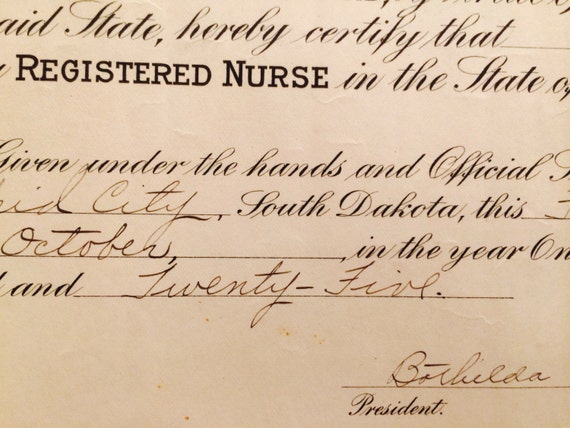 said State, hereby certify that
REGISTERED NURSE in the State of
Given under the hands and Official
City, South Dakota, this
October, , in the year On
and Twenty-Five.
Bothilda
President.